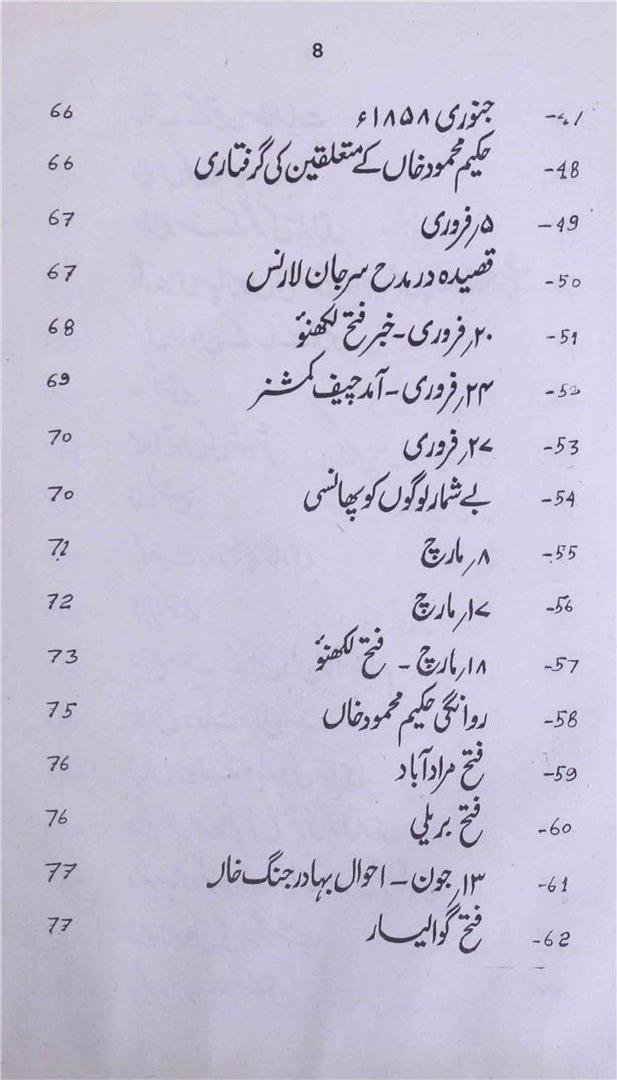 8
جنوری ۱۸۵۸ء 66
48- حکیم محمود خاں کے متعلقین کی گرفتاری 66
49- ۵؍فروری 67
50- قصیدہ در مدح سر جان لارنس 67
51- ۲۰؍فروری - خبر فتح لکھنؤ 68
52- ۲۴؍فروری - آمد چیف کمشنر 69
53- ۲۷؍فروری 70
54- بے شمار لوگوں کو پھانسی 70
55- ۸؍مارچ 71
56- ۱۷؍مارچ 72
57- ۱۸؍مارچ - فتح لکھنؤ 73
58- روانگی حکیم محمود خاں 75
59- فتح مرادآباد 76
60- فتح بریلی 76
61- ۱۳؍جون - احوال بہادر جنگ خاں 77
62- فتح گوالیار 77